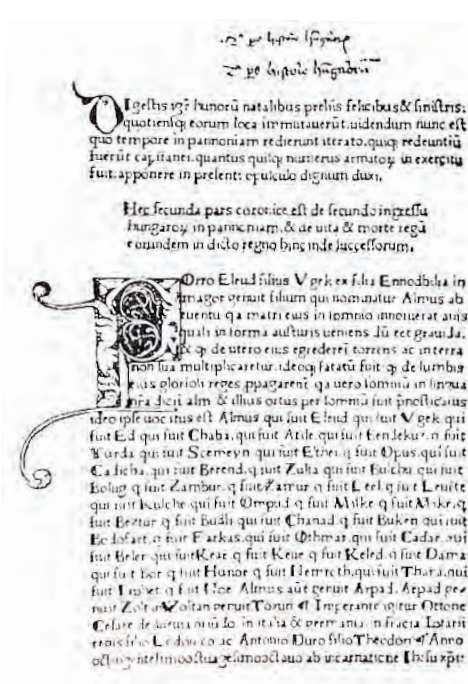 Digestis ygr̃ hunorũ natalibus preliis felicibus & sinistris:
quotiensq̃ eorum loca immutauerũt, uidendum nunc est
quo tempore in pannoniam redierunt iterato, quiq̃ redeuntiũ
fuerũt capitanei, quantus quilq̃ numerus armatoꝝ in exercitu
fuit, apponere in presenti opusculo dignum duxi,
Hec secunda pars coronice est de secundo ingressu
hungaroꝝ in pannoniam, & de uita & morte regũ
eorundem in dicto regno hinc inde successorum,
Porro Eleud filius Vgek ex filia Ennodbilia in
magor genuit filium qui nominatur Almus ab
euentu qa matri eius in somnio innotuerat auis
quasi in forma austuris ueniens
& q̃ de utero eius egrederet̃ torrens ac in terra
non sua multiplicaretur, ideoq̃ fatatũ fuit q̃ de lumbis
eius gloriosi reges ꝓpagarent̃ qa uero somniũ in lingua
nr̃a dicit̃ alm & illius ortus per somniũ fuit pronosticatus
ideo ipse uocatus est Almus qui fuit Eleud qui fuit Vgek qui
fuit Ed qui fuit Chaba, qui fuit Atile, qui fuit Bendekur, q fuit
Turda qui fuit Scemeyn qui fuit Ethei q fuit Opus, qui fuit
Cadicha, qui fuit Berend, q fuit Zulta qui fuit Bulchu qui fuit
Bolug q fuit Zambur, q fuit Zamur q fuit Leel, q fuit Leuste
qui fuit Kulche, qui fuit Ompud q fuit Milke q fuit Mike, q
fuit Beztur q fuit Budli qui fuit Chanad, q fuit Buken qui fuit
Bondofart, q fuit Farkas, qui fuit Othmar, qui fuit Cadar, qui
fuit Beler qui fuit Kear q fuit Keue q fuit Keled, q fuit Dama
qui fuit Bor q fuit Hunor q fuit Nemroth, qui fuit Thara, qui
fuit q fuit Noe Almus aũt genuit Arpad, Arpad ge
nuit Zoltan Zoltan genuit Toxun ¶ Imperante igitur Ottone
Cesare de in italia & germania, in fracia Lotarii
filio Lodouico ac Antonio Duro filio Theodori ¶ Anno
octingentesimo octuagesimo octauo ab incarnatione Ihesu xp̃i: